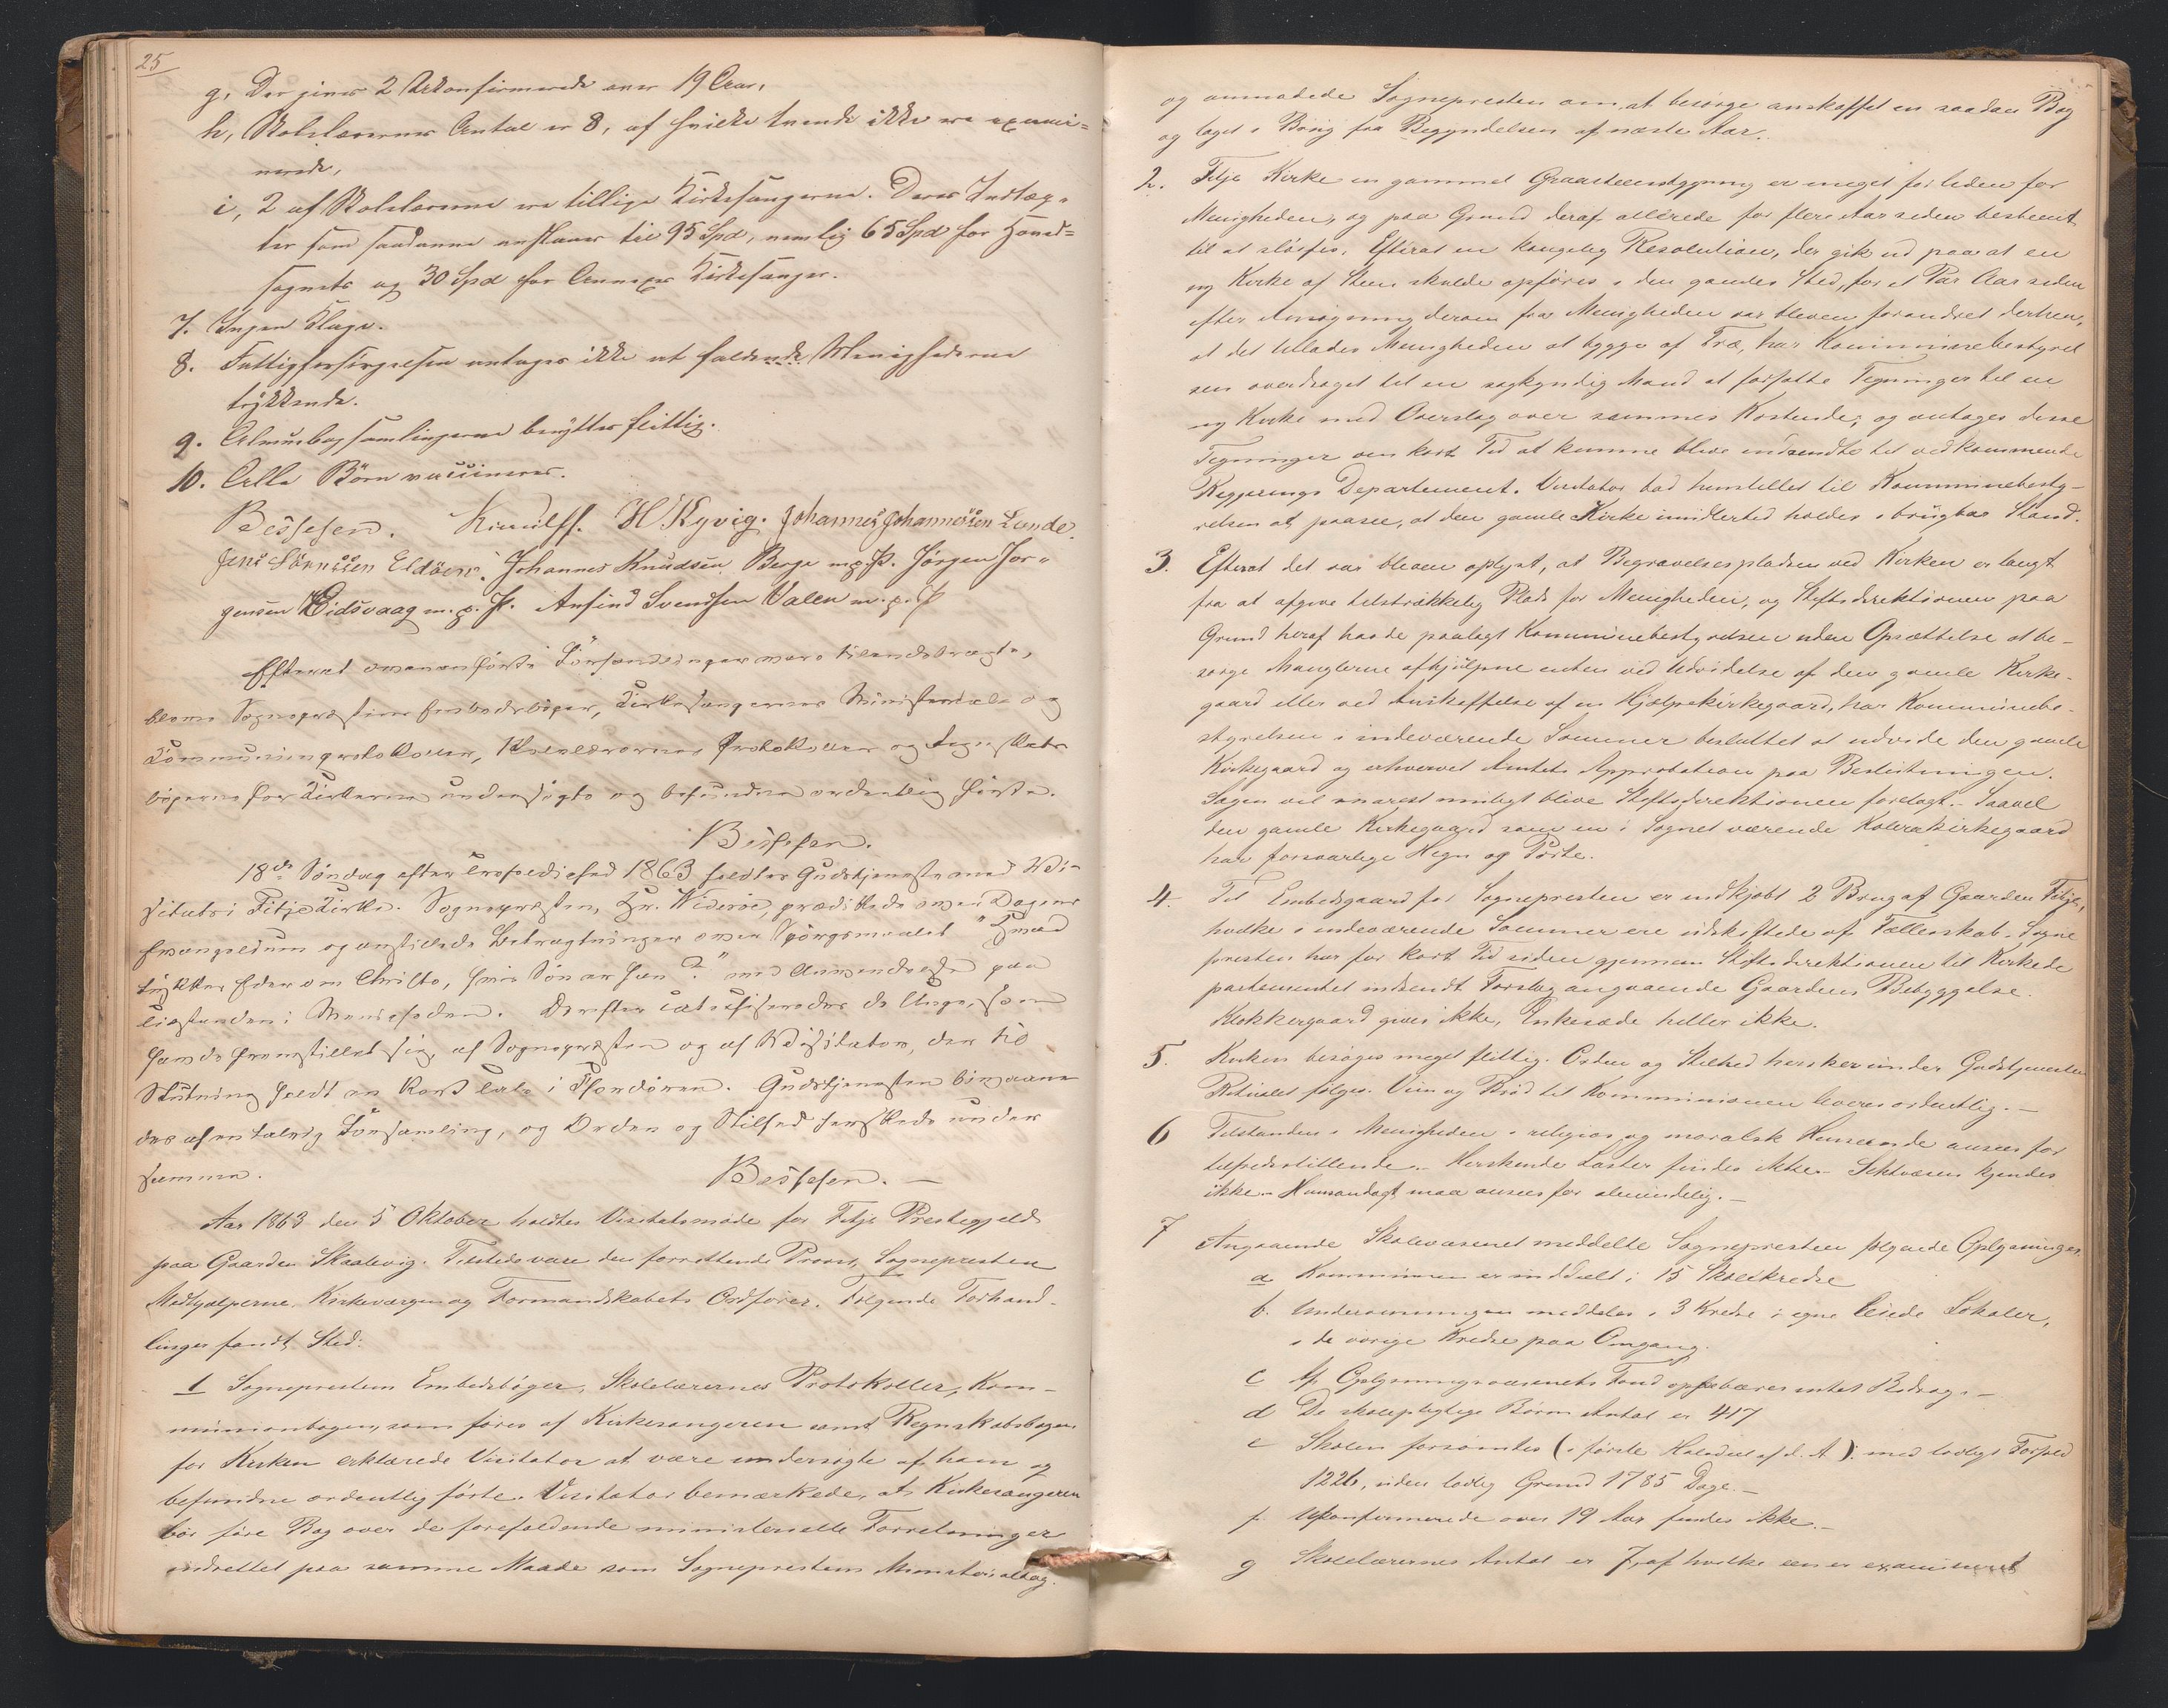 25
g, Der gives 2 Ukonfirmerede over 19 Aar.
h, Skolelærernes Antal er 8, af hvilke tvende ikke ere exami=
nerede,
i, 2 af Skolelærerne ere tillige Kirkesangerne. Deres Indtæg=
ter som saadanne anslaaes til 95 Spd, nemlig 65 Spd for Hoved=
sognets og 30 Spd for Annexes Kirkesanger.
7. Ingen Klage.
8. Fattigforsørgelsen antages ikke at falde Menighederne
trykkende.
9. Almuebogsamlingerne benyttes flittig.
10. Alle Børn vaccineres.
Bessesen. H Kyvig. Johannes Johannessen Lunde.
Jens Sørnssen Eldøen. Johannes Knudsen Berge m.p.P. Jørgen Jør=
gensen Eidsvaag m.p.P. Ansind Svendsen Valen m.p.P
Efterat ovenanførte Forhandlinger vare tilendebragte,
bleve Sognepræstens Embedsbøger, Kirkesangernes Ministerial- og
Communionprotokoller, Skolelærernes Protokoller og Regnskabs-
bøgerne for Kirkerne undersøgte og befundne ordentlig førte.
Bessesen.
18de Søndag efter Trefoldighed 1863 holdtes Gudstjeneste med Vi-
sitats i Fitje Kirke. Sognepræsten, Hr. Widerøe, prædikede over Dagens
Evangelium og anstillede Betragtninger over Spørgsmaalet "Hvad
tykkes Eder om Christo, hvis Søn er han?" med Anvendelse paa
Tilstanden i Menigheden. Derefter catechiseredes de Unge, som
havde fremstillet sig, af Sognepræsten og af Visitator, der til
Slutning holdt en kort Tale i Chordøren. Gudstjenesten bivaane-
des af en talrig Forsamling, og Orden og Stilhed herskede under
samme.
Bessesen. —
Aar 1863 den 5 Oktober holdtes Visitatsmøde for Fitje Prestegjeld
paa Gaarden Skaalevig. Tilstede vare den forrettende Provst, Sognepresten
Medhjælperne, Kirkeværgen og Formandskabets Ordfører. Følgende Forhand-
linger fandt Sted:
1 Sogneprestens Embedsbøger, Skolelærernes Protokoller, Kom-
munionbogen, som føres af Kirkesangeren samt Regnskabsbogen
for Kirken erklærede Visitator at være undersøgte af ham og
befundne ordentlig førte. Visitator bemærkede, at Kirkesangeren
bør føre Bog over de forefaldende ministerielle Forretninger
indrettet paa samme Maade som Sogneprestens Ministerialbog.
og anmodede Sognepresten om at besørge anskaffet en saadan Bog
og taget i Brug fra Begyndelsen af næste Aar.
2. Fitje Kirke en gammel Graasteensbygning er meget for liden for
Menigheden, og paa Grund deraf allerede for flere Aar siden bestemt
til at sløifes. Efterat en kongelig Resolution, der gik ud paa at en
ny Kirke af Steen skulde opføres i den gamles Sted, for et Par Aar siden
efter Ansøgning derom fra Menigheden var bleven forandret derhen,
at det tillades Menigheden at bygge af Træ, har Kommunebestyrel
sen overdraget til en sagkyndig Mand at forfatte Tegninger til en
ny Kirke med Overslag over sammes Kostende, og antages disse
Tegninger om kort Tid at kunne blive indsendte til vedkommende
Regjerings Departement. Visitator bad henstillet til Kommunebesty-
relsen at paasee, at den gamle Kirke imidlertid holdes i brugbar Stand.
3. Efterat det var bleven oplyst, at Begravelsespladsen ved Kirken er langt
fra at afgive tilstrækkelig Plads for Menigheden, og Stiftsdirektionen paa
Grund heraf havde paalagt Kommunebestyrelsen uden Opsættelse at be-
sørge Manglerne afhjulpne enten ved Udvidelse af den gamle Kirke-
gaard eller ved Anskaffelse af en Hjælpekirkegaard, har Kommunebe-
styrelsen i indeværende Sommer besluttet at udvide den gamle
Kirkegaard og erhvervet Amtets Approbation paa Beslutningen.
Sagen vil snarest muligt blive Stiftsdirektionen forelagt. Saavel
den gamle Kirkegaard som en i Sognet værende Kolerakirkegaard
har forsvarlige Hegn og Porte.
4. Til Embedsgaard for Sognepresten er indkjøbt 2 Brug af Gaarden Fitje,
hvilke i indeværende Sommer ere udskiftede af Fælleskab. Sogne
presten har for kort Tid siden gjennem Stiftsdirektionen til Kirkede
partementet indsendt Forslag angaaende Gaardens Bebyggelse.
Klokkergaard gives ikke, Enkesæde heller ikke.
5. Kirken besøges meget flittig. Orden og Stilhed hersker under Gudstjenesten
Ritualet følges. Viin og Brød til Kommunionen leveres ordentlig. —
6 Tilstanden i Menigheden i religiøs og moralsk Henseende ansees for
tilfredsstillende. — Herskende Laster findes ikke. Sektvæsen kjendes
ikke. — Huusandagt maa ansees for almindelig. —
7 Angaaende Skolevæsenet meddelte Sognepresten følgende Oplysninger
a Kommunen er inddeelt i 15 Skolekredse
b. Underviisningen meddeles i 3 Kredse i egne leiede Lokaler,
i de øvrige Kredse paa Omgang.
c Af Oplysningsvæsenets Fond oppebæres intet Bidrag. —
d De skolepligtige Børns Antal er 417
e Skolen forsømtes (i første Halvdeel af d. A): med lovligt Forfald
1226, uden lovlig Grund 1785 Dage. —
f. Ukonfirmerede over 19 Aar findes ikke. —
g Skolelærernes Antal er 7, af hvilke een er examineret